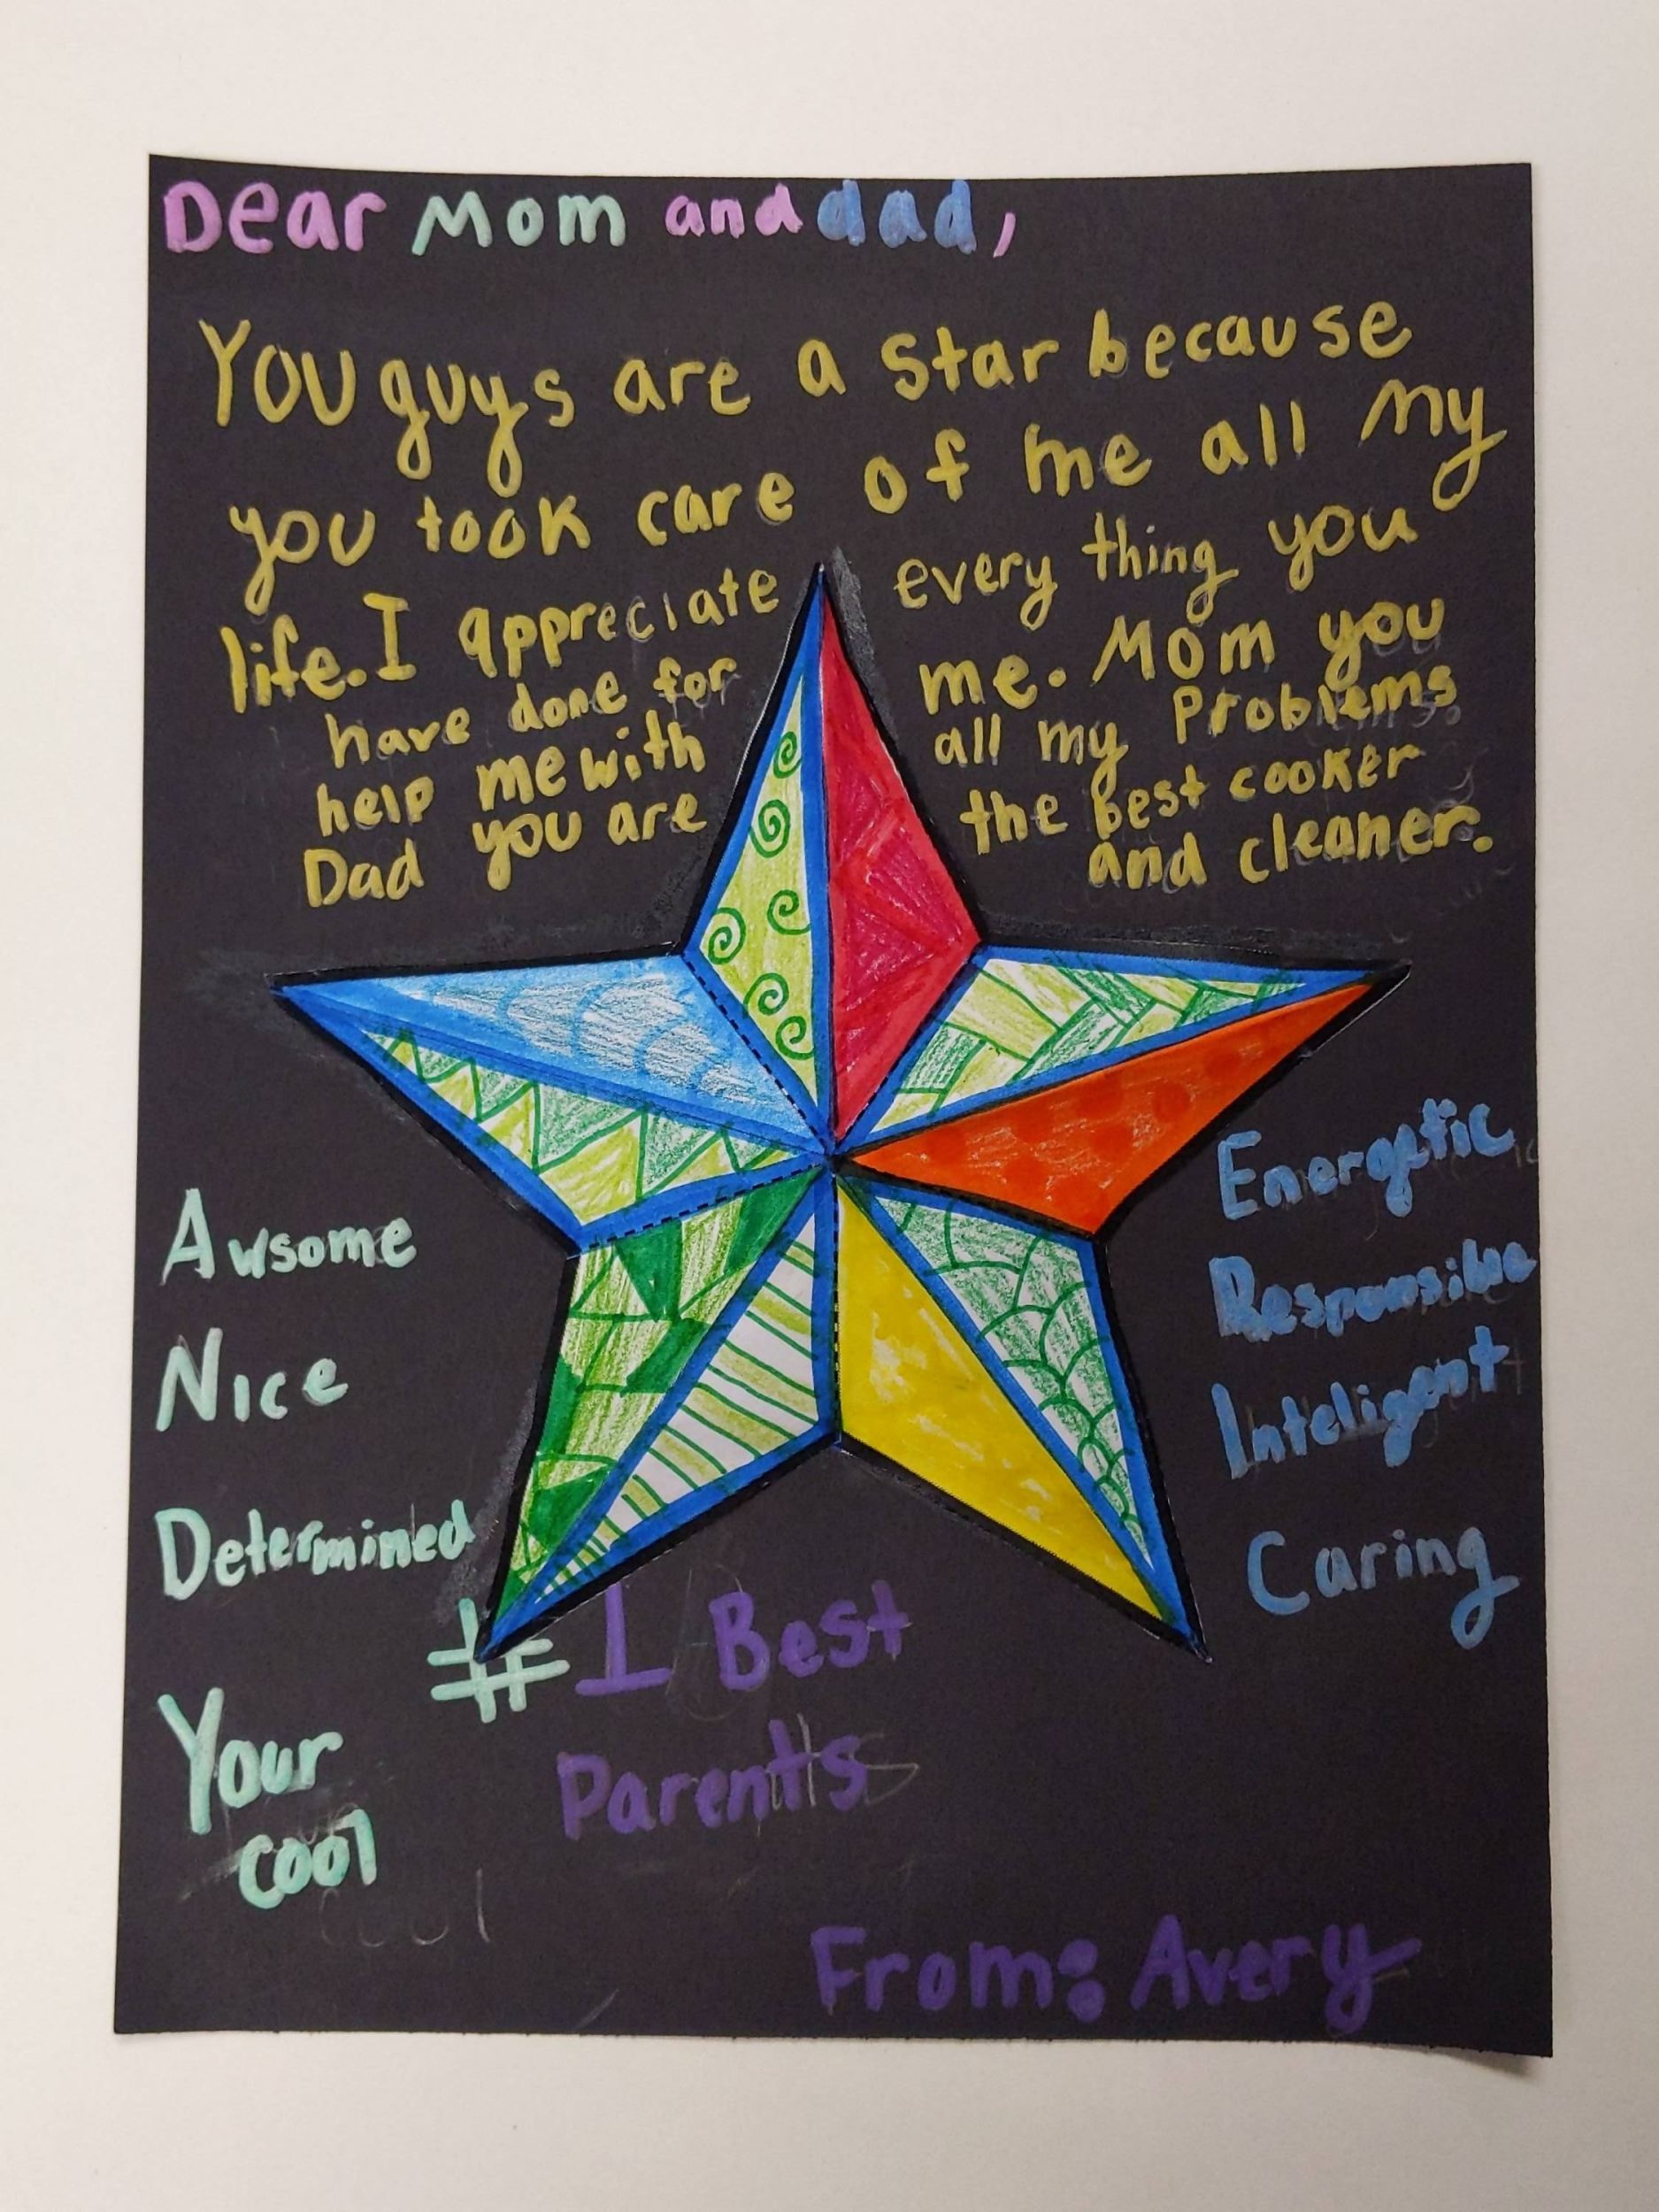 Dear Mom and dad,
You guys are a star because
you took care of me all my
life. I appreciate every thing you
have done for me. Mom you
help me with all my Problems
Dad you are the best cooker
and cleaner.
Awsome
Nice
Determined
Your
cool
Energetic
Responsible
Inteligent
Caring
#1 Best
Parents
From: Avery